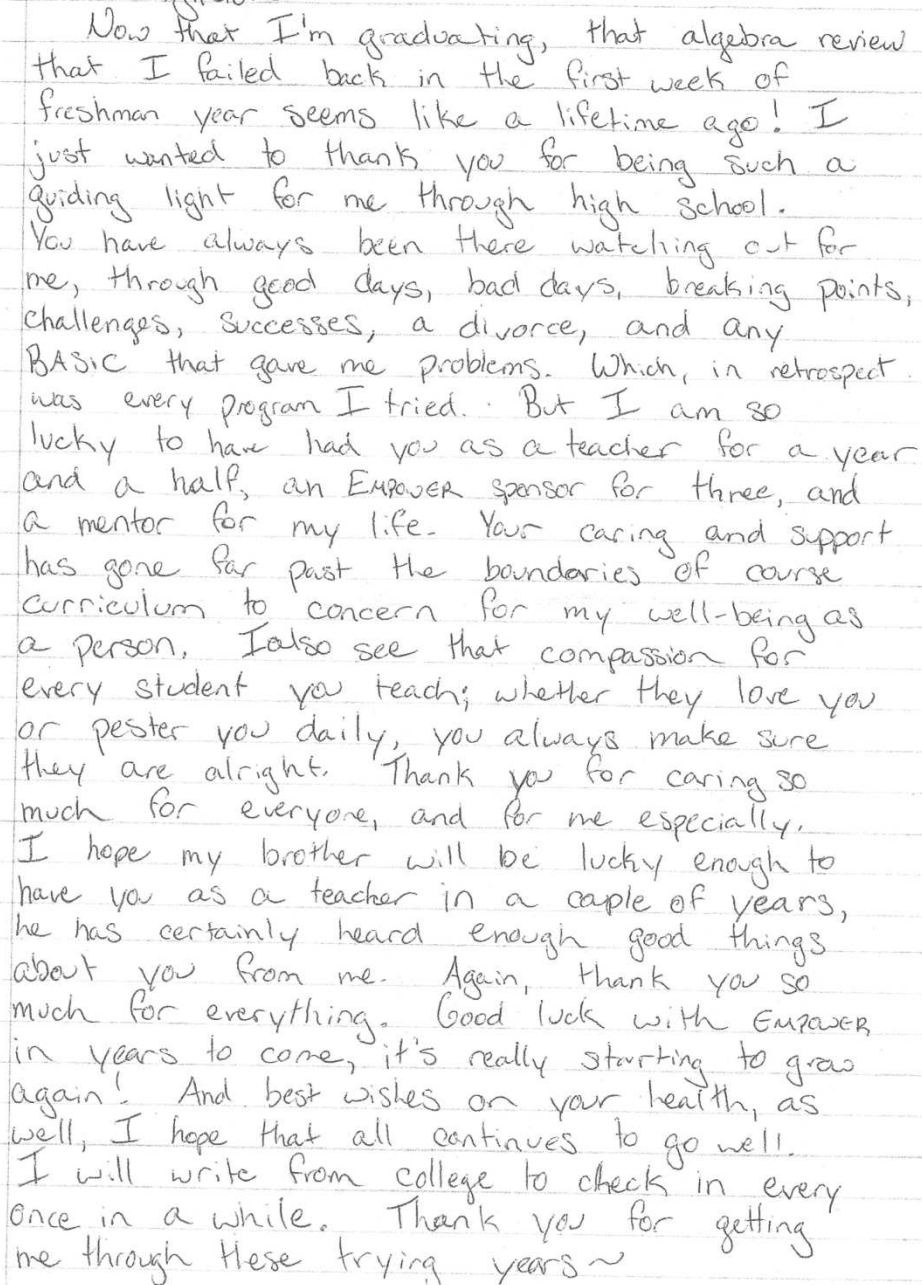 Now that I'm graduating, that algebra review
that I failed back in the first week of
freshman year seems like a lifetime ago! I
just wanted to thank you for being such a
guiding light for me through high school.
You have always been there watching out for
me, through good days, bad days, breaking points,
challenges, successes, a divorce, and any
BASiC that gave me problems. Which, in retrospect
was every program I tried. But I am so
lucky to have had you as a teacher for a year
and a half, an EMPOWER sponsor for three, and
a mentor for my life. Your caring and support
has gone far past the boundaries of course
curriculum to concern for my well-being as
a person. I also see that compassion for
every student you teach; whether they love you
or pester you daily, you always make sure
they are alright. Thank you for caring so
much for everyone, and for me especially.
I hope my brother will be lucky enough to
have you as a teacher in a couple of years,
he has certainly heard enough good things
about you from me. Again, thank you so
much for everything. Good luck with EMPOWER
in years to come, it's really starting to grow
again! And best wishes on your health, as
well, I hope that all continues to go well.
I will write from college to check in every
once in a while. Thank you for getting
me through these trying years~